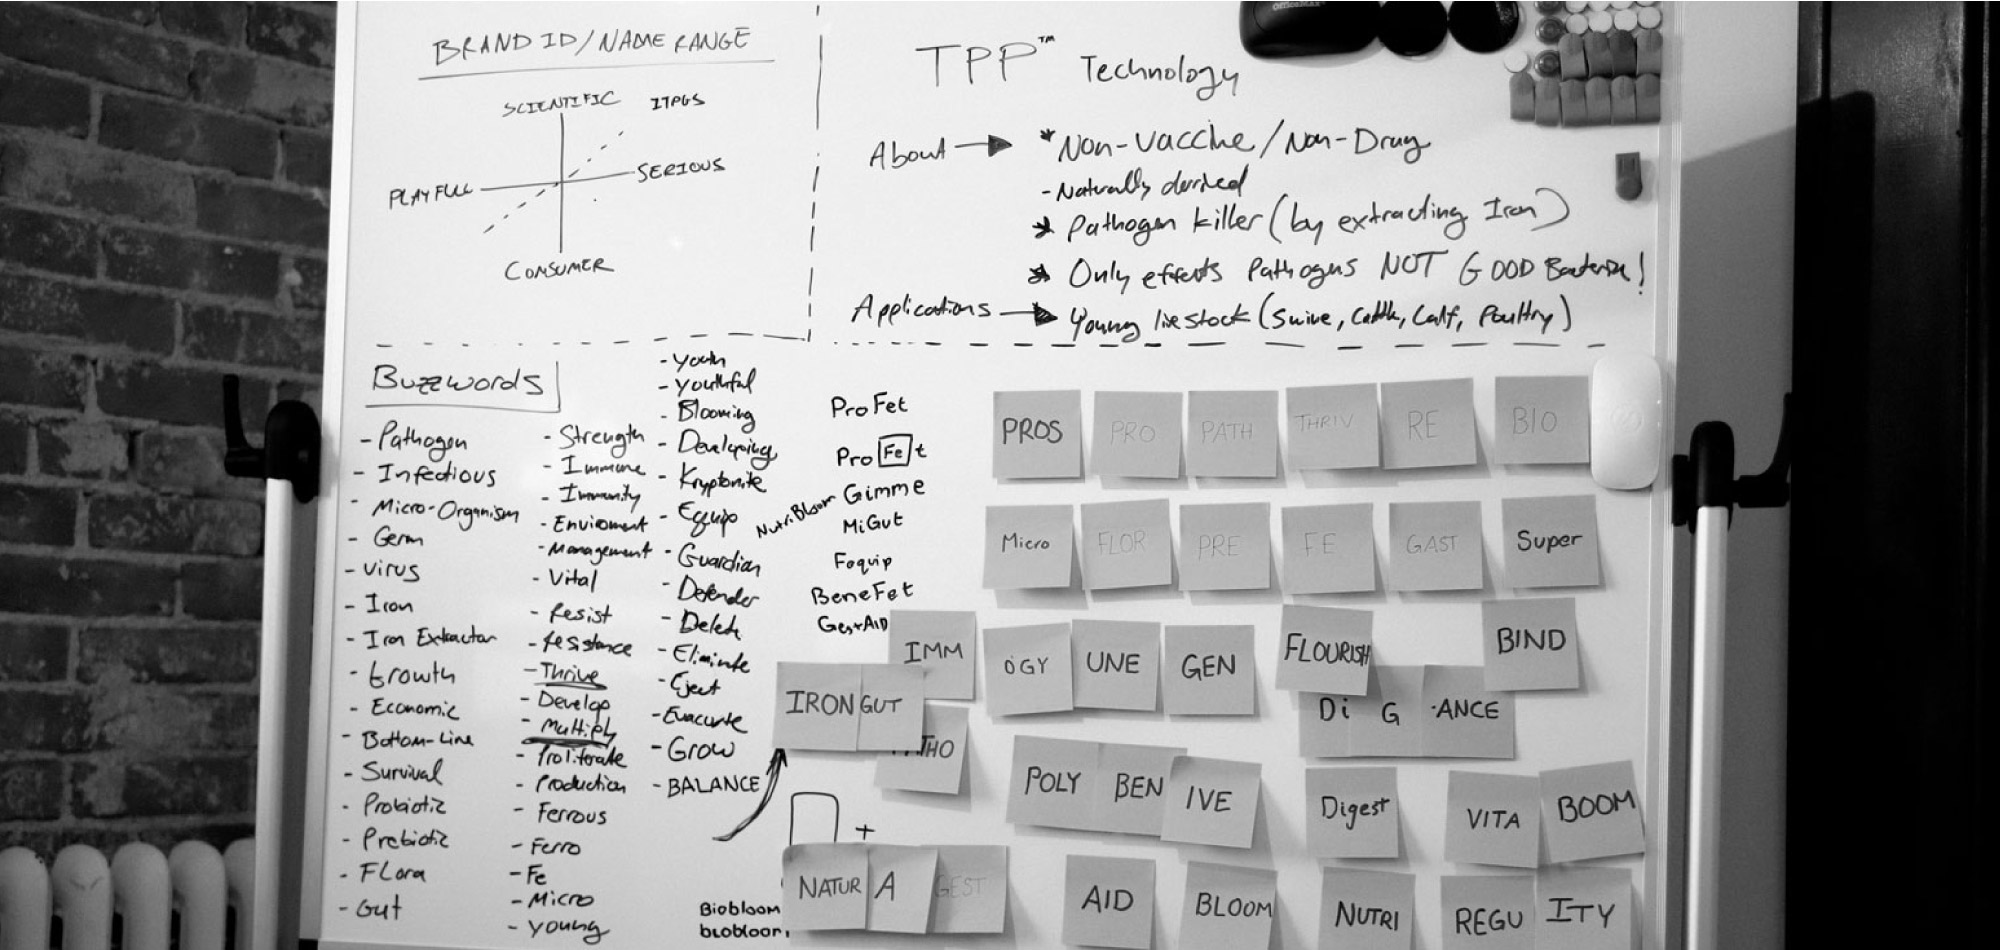 BRAND ID/NAME RANGE
SCIENTIFIC ITPGS
PLAYFULL SERIOUS
CONSUMER
OfficeMax
TPP™ Technology
About → * Non-Vaccine/Non-Drug
- Naturally derived
* Pathogen killer (by extracting Iron)
* Only effects Pathogens NOT GOOD Bacteria!
Applications → Young livestock (Swine, Cattle, Calf, Poultry)
Buzzwords
- Pathogen
- Infectious
- Micro-Organism
- Germ
- Virus
- Iron
- Iron Extractor
- Growth
- Economic
- Bottom-Line
- Survival
- Probiotic
- Prebiotic
- FLora
- Gut
- Strength
- Immune
- Immunity
- Enviroment
- Management
- Vital
- Resist
- Resistance
- Thrive
- Develop
- Multiply
- Proliforate
- Production
- Ferrous
- Ferro
- Fe
- Micro
- Young
- Youth
- Youthful
- Blooming
- Developing
- Kryptonite
- Equip
- Guardian
- Defender
- Delete
- Eliminte
- Eject
- Evacuate
- Grow
- BALANCE
ProFet
Pro Fe t
NutriBloom
Gimme
MiGut
Fequip
BeneFet
GestAID
Biobloom
biobloom
PROS PRO PATH THRIV RE BIO
Micro FLOR PRE FE GAST Super
IMM OGY UNE GEN FLOURISH BIND
IRON GUT Di G ANCE
THO
POLY BEN IVE Digest VITA BOOM
+
NATUR A GEST AID BLOOM NUTRI REGU ITY